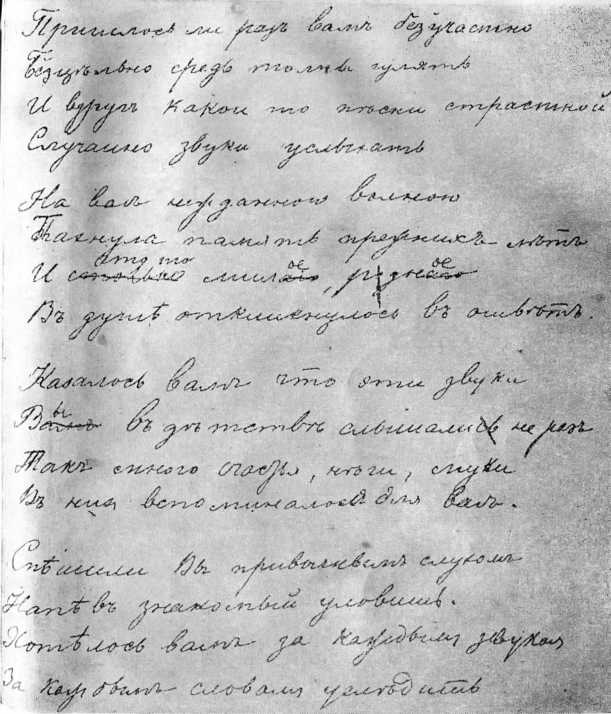 Пришлось ли разъ вамъ безучастно
Безцѣльно средь толпы гулять
И вдругъ какои то пѣсни страстной
Случаино звуки услыхать
На васъ нежданною волною
Пахнула память прежнихъ лѣтъ
И что то милое, родное
Въ душѣ откликнулось въ отвѣтъ.
Казалось вамъ что эти звуки
Вы въ дѣтствѣ слышали не разъ
Такъ много счастья, нѣги, муки
Въ нихъ вспоминалось для васъ.
Спѣшили Вы привычнымъ слухомъ
Напѣвъ знакомый уловить.
Хотѣлось вамъ за каждымъ звукомъ
За каждымъ словомъ услѣдить